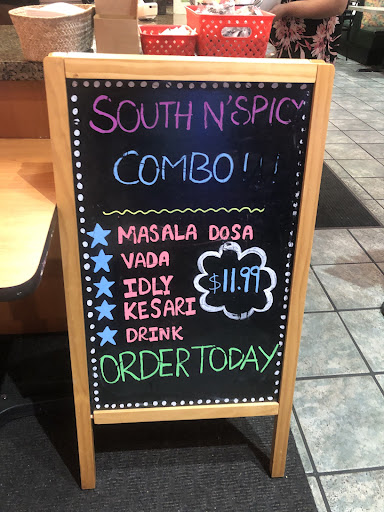 SOUTH N' SPICY
COMBO!!!
MASALA DOSA
VADA
IDLY
$11.99
KESARI
DRINK
ORDER TODAY